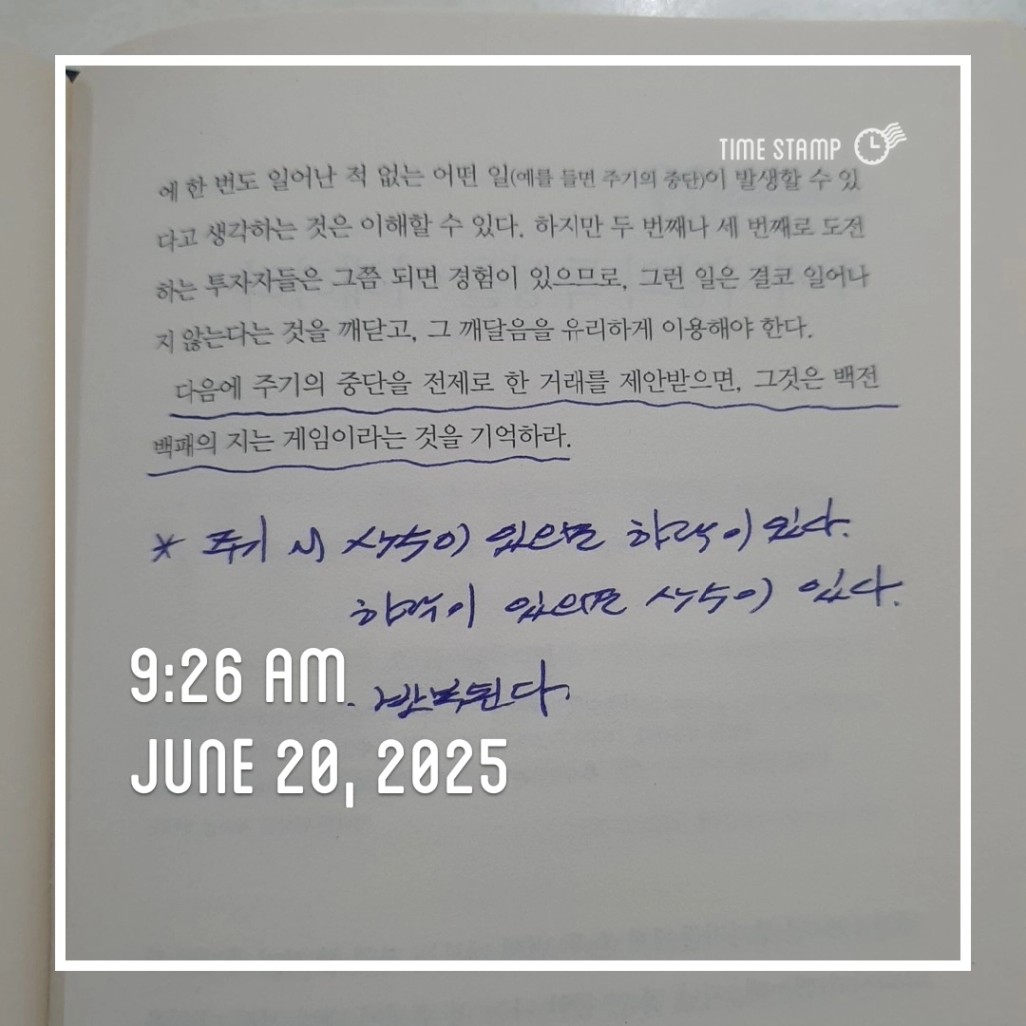 TIME STAMP
에 한 번도 일어난 적 없는 어떤 일(예를 들면 주기의 중단)이 발생할 수 있
다고 생각하는 것은 이해할 수 있다. 하지만 두 번째나 세 번째로 도전
하는 투자자들은 그쯤 되면 경험이 있으므로, 그런 일은 결코 일어나
지 않는다는 것을 깨닫고, 그 깨달음을 유리하게 이용해야 한다.
다음에 주기의 중단을 전제로 한 거래를 제안받으면, 그것은 백전
백패의 지는 게임이라는 것을 기억하라.
* 주기 시 상승이 있으면 하락이 있다.
하락이 있으면 상승이 있다.
반복된다.
9:26 AM
JUNE 20, 2025